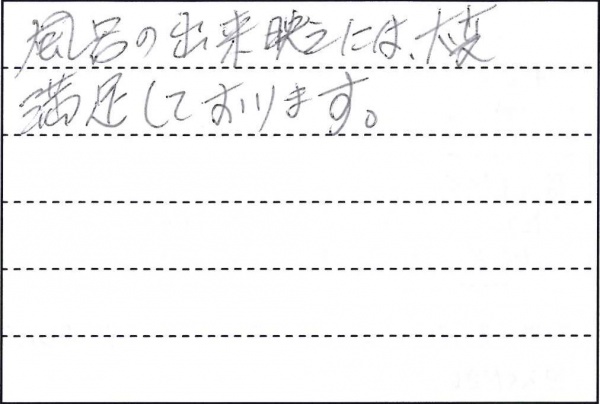 風呂の出来映えには、大変
満足しております。